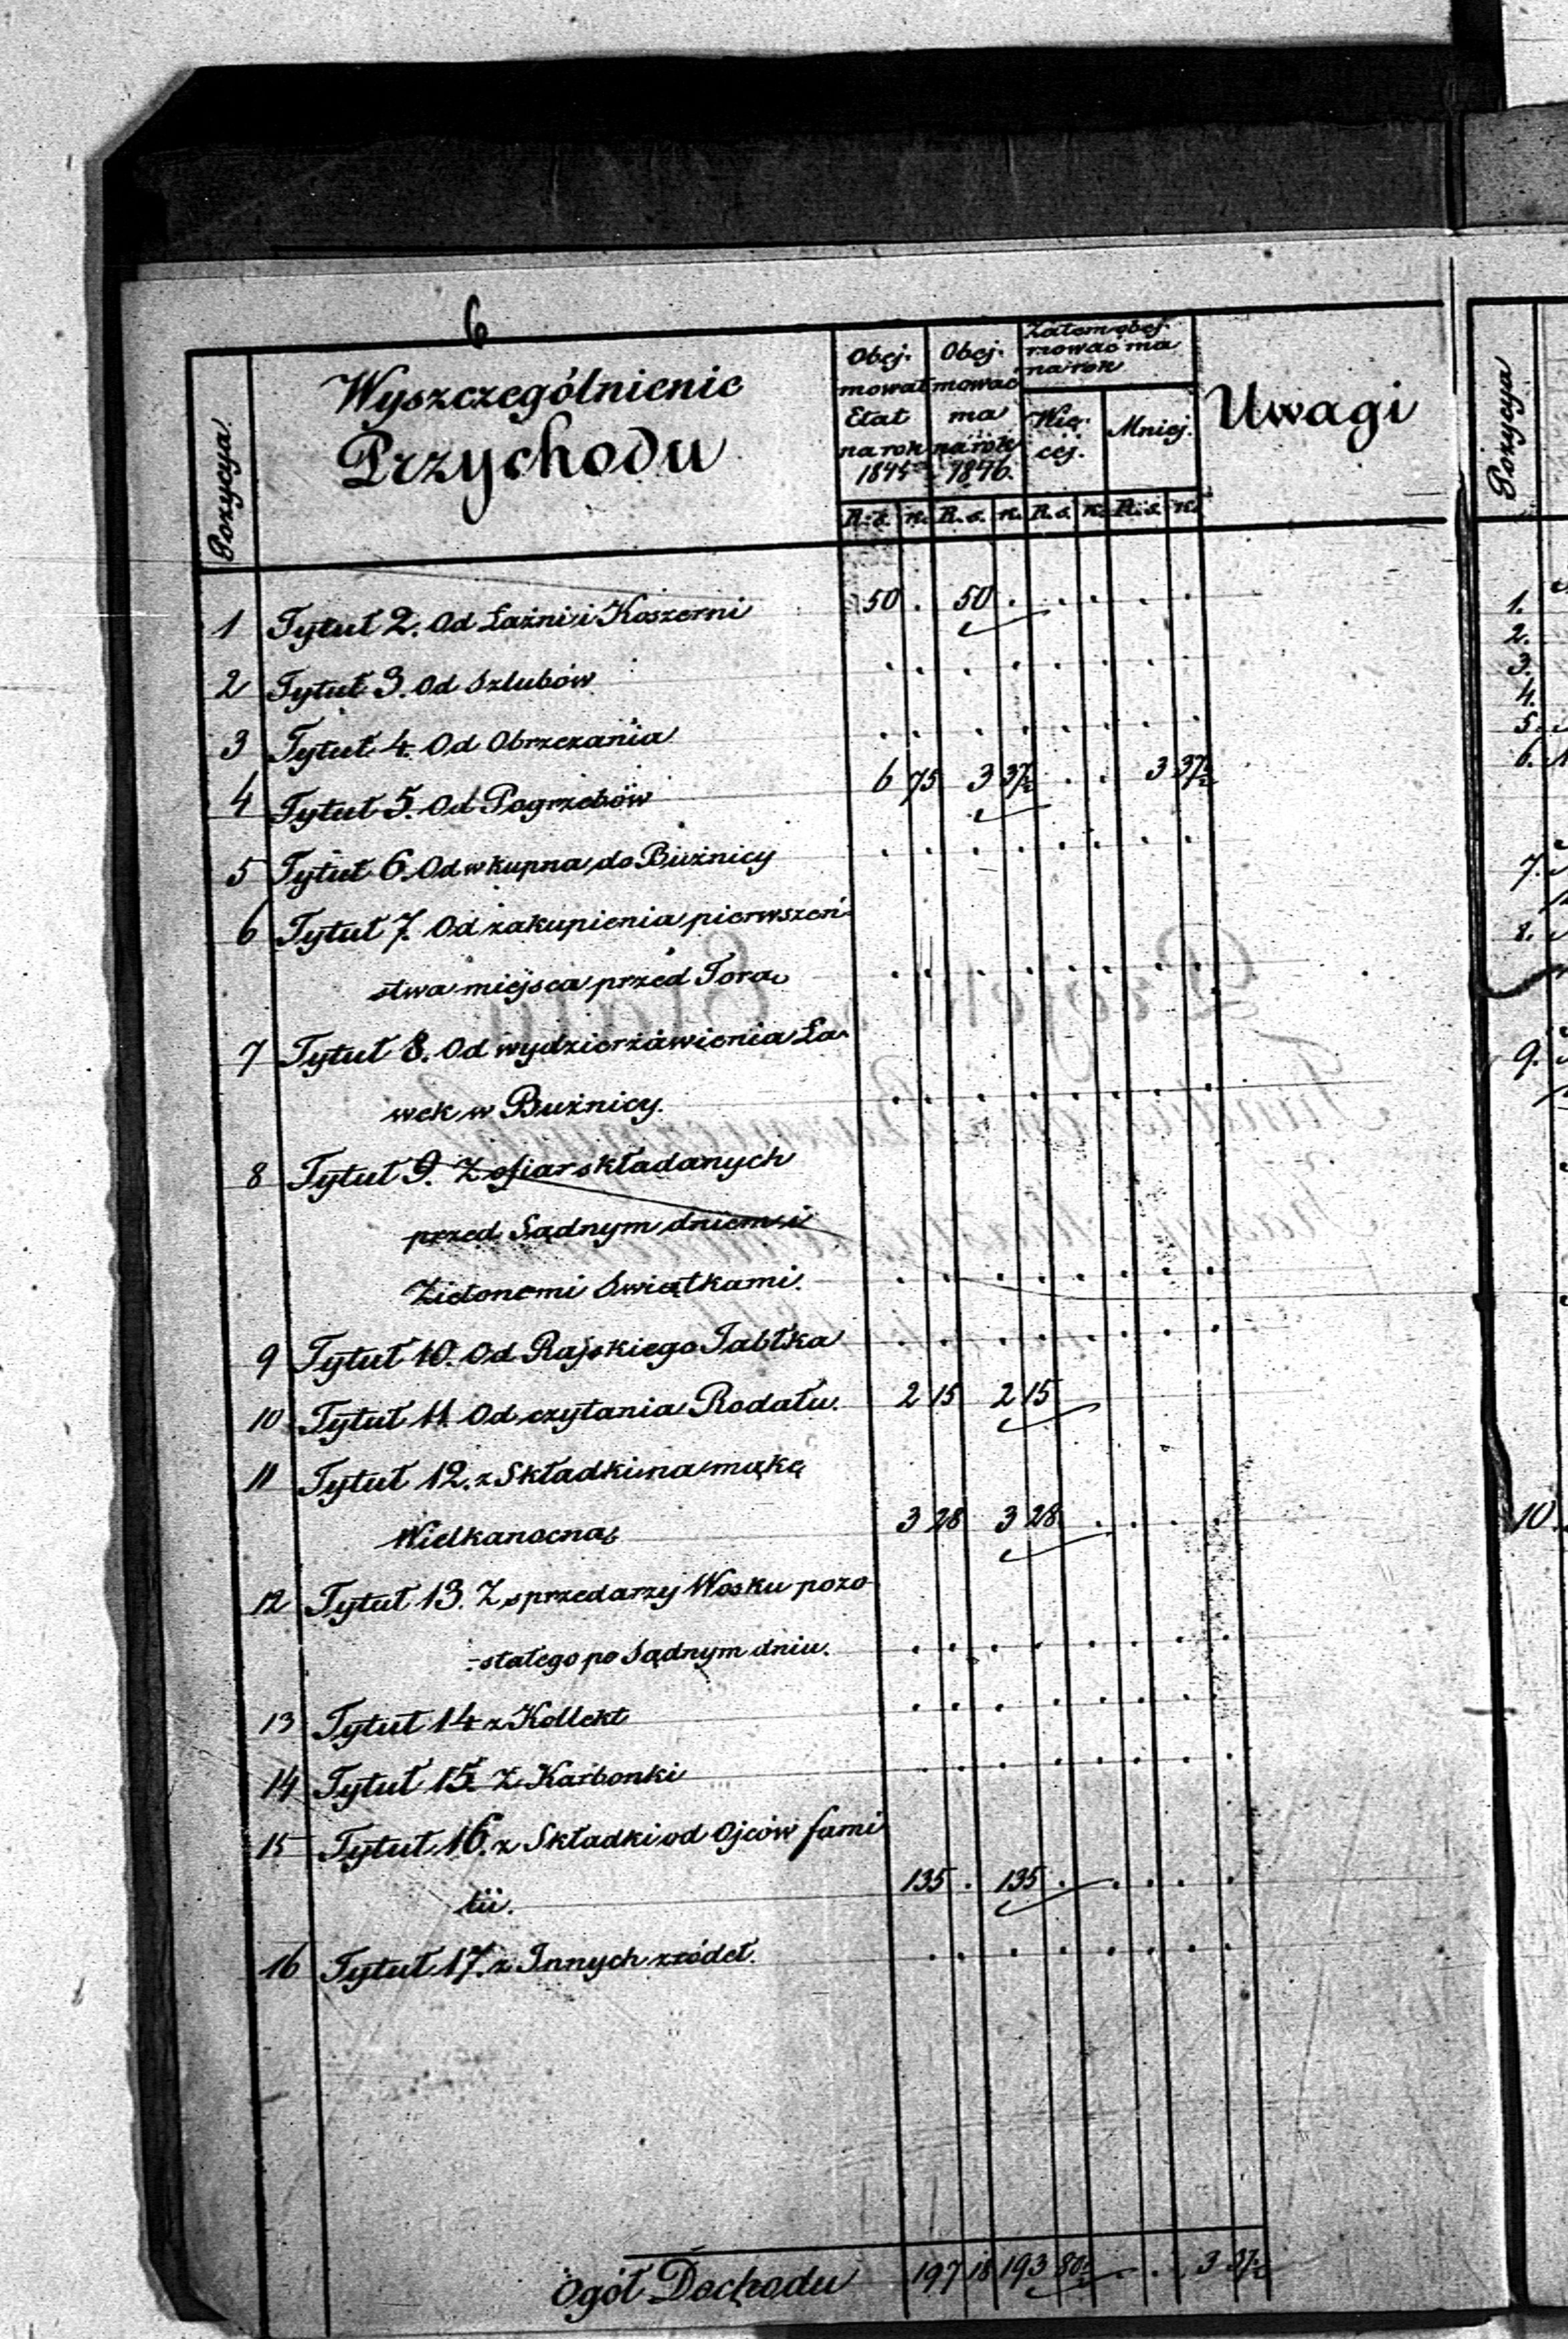 6
Pozycya
Wyszczególnienie
Przychodu
Obej-
mował
Etat
na rok
1845
Obej-
mować
ma
na rok
1846.
Zatem obej-
mować ma
na rok
Wię-
cej.
Mniej.
Uwagi
R. s. k. R. s. k. R. s. k. R. s. k.
1 Tytuł 2. Od Łaźni i Koszerni 50 . 50 . . . . .
2 Tytuł 3. Od Szlubów . . . . . . . .
3 Tytuł 4. Od Obrzezania . . . . . . . .
4 Tytuł 5. Od Pogrzebów 6 75 3 37½ . . 3 37½
5 Tytuł 6. Od wkupna do Bużnicy . . . . . . . .
6 Tytuł 7. Od zakupienia pierwszeń-
stwa miejsca przed Torą . . . . . . . .
7 Tytuł 8. Od wydzierżawienia Ła-
wek w Bużnicy. . . . . . . . .
8 Tytuł 9. Z ofiar składanych
przed Sądnym dniem i
Zielonemi Świątkami. . . . . . . . .
9 Tytuł 10. Od Rajskiego Jabłka . . . . . . . .
10 Tytuł 11. Od czytania Rodału. 2 15 2 15
11 Tytuł 12. z Składki na mąkę
Wielkanocną 3 28 3 28 . . . .
12 Tytuł 13. Z sprzedarzy Wosku pozo-
-stałego po Sądnym dniu. . . . . . . . .
13 Tytuł 14 z Kollekt . . . . . . . .
14 Tytuł 15. Z Karbonki . . . . . . . .
15 Tytuł 16. z Składki od Ojców fami
lii. 135 . 135 . . . . .
16 Tytuł 17. z Innych zródeł. . . . . . . . .
Ogół Dochodu 197 18 193 80½ . . 3 37½
Pozycya
1.
2.
3.
4.
5.
6.
7.
8.
9.
10.